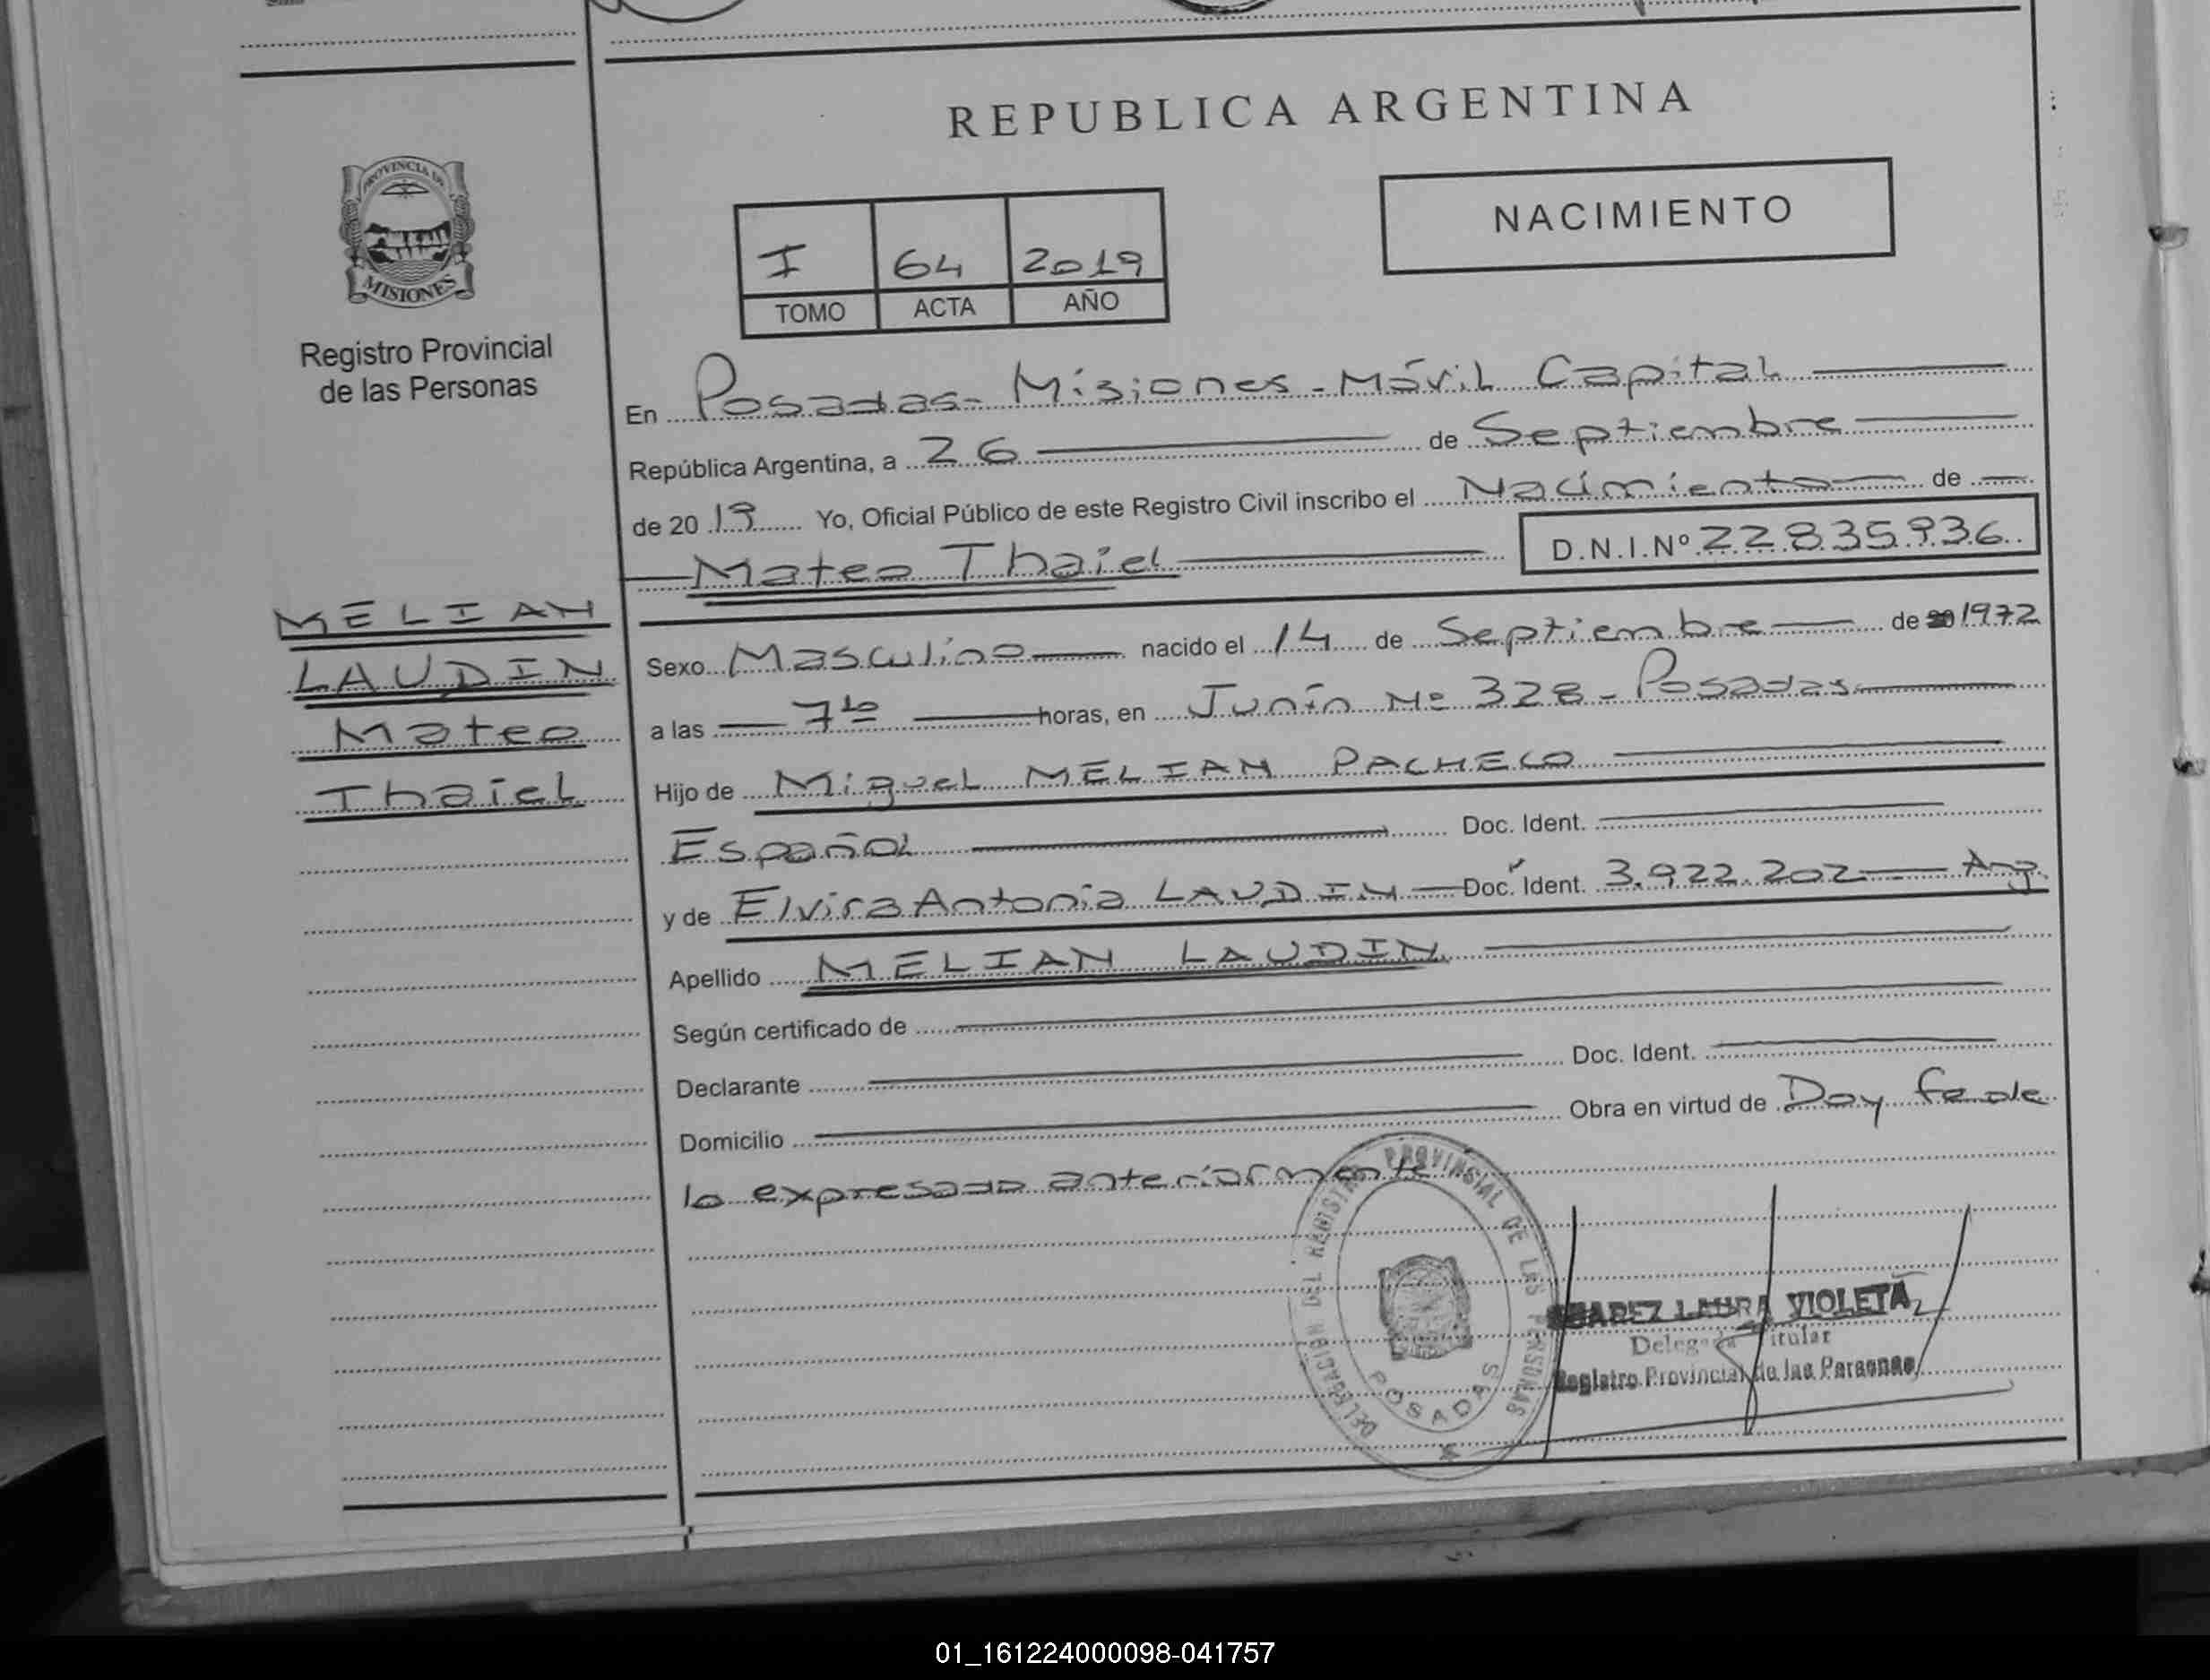 REPUBLICA ARGENTINA
PROVINCIA DE
MISIONES
Registro Provincial
de las Personas
NACIMIENTO
I 64 2019
TOMO ACTA AÑO
En Posadas - Misiones - Móvil Capital
República Argentina, a 26 de Septiembre
de 2019 Yo, Oficial Público de este Registro Civil inscribo el Nacimiento de
Mateo Thaiel D.N.I.Nº 22835936
MELIAN
LAUDIN
Mateo
Thaiel
Sexo Masculino nacido el 14 de Septiembre de 1972
a las 7 horas, en Junín Nº 328 - Posadas
Hijo de Miguel MELIAN PACHECO
Español Doc. Ident.
y de Elvira Antonia LAUDIN Doc. Ident. 3.922.202 Arg.
Apellido MELIAN LAUDIN
Según certificado de
Declarante Doc. Ident.
Domicilio Obra en virtud de Doy fe de
lo expresado anteriormente
DELEGACION DEL REGISTRO PROVINCIAL DE LAS PERSONAS
POSADAS
SUAREZ LAURA VIOLETA
Delegada Titular
Registro Provincial de las Personas
01_161224000098-041757